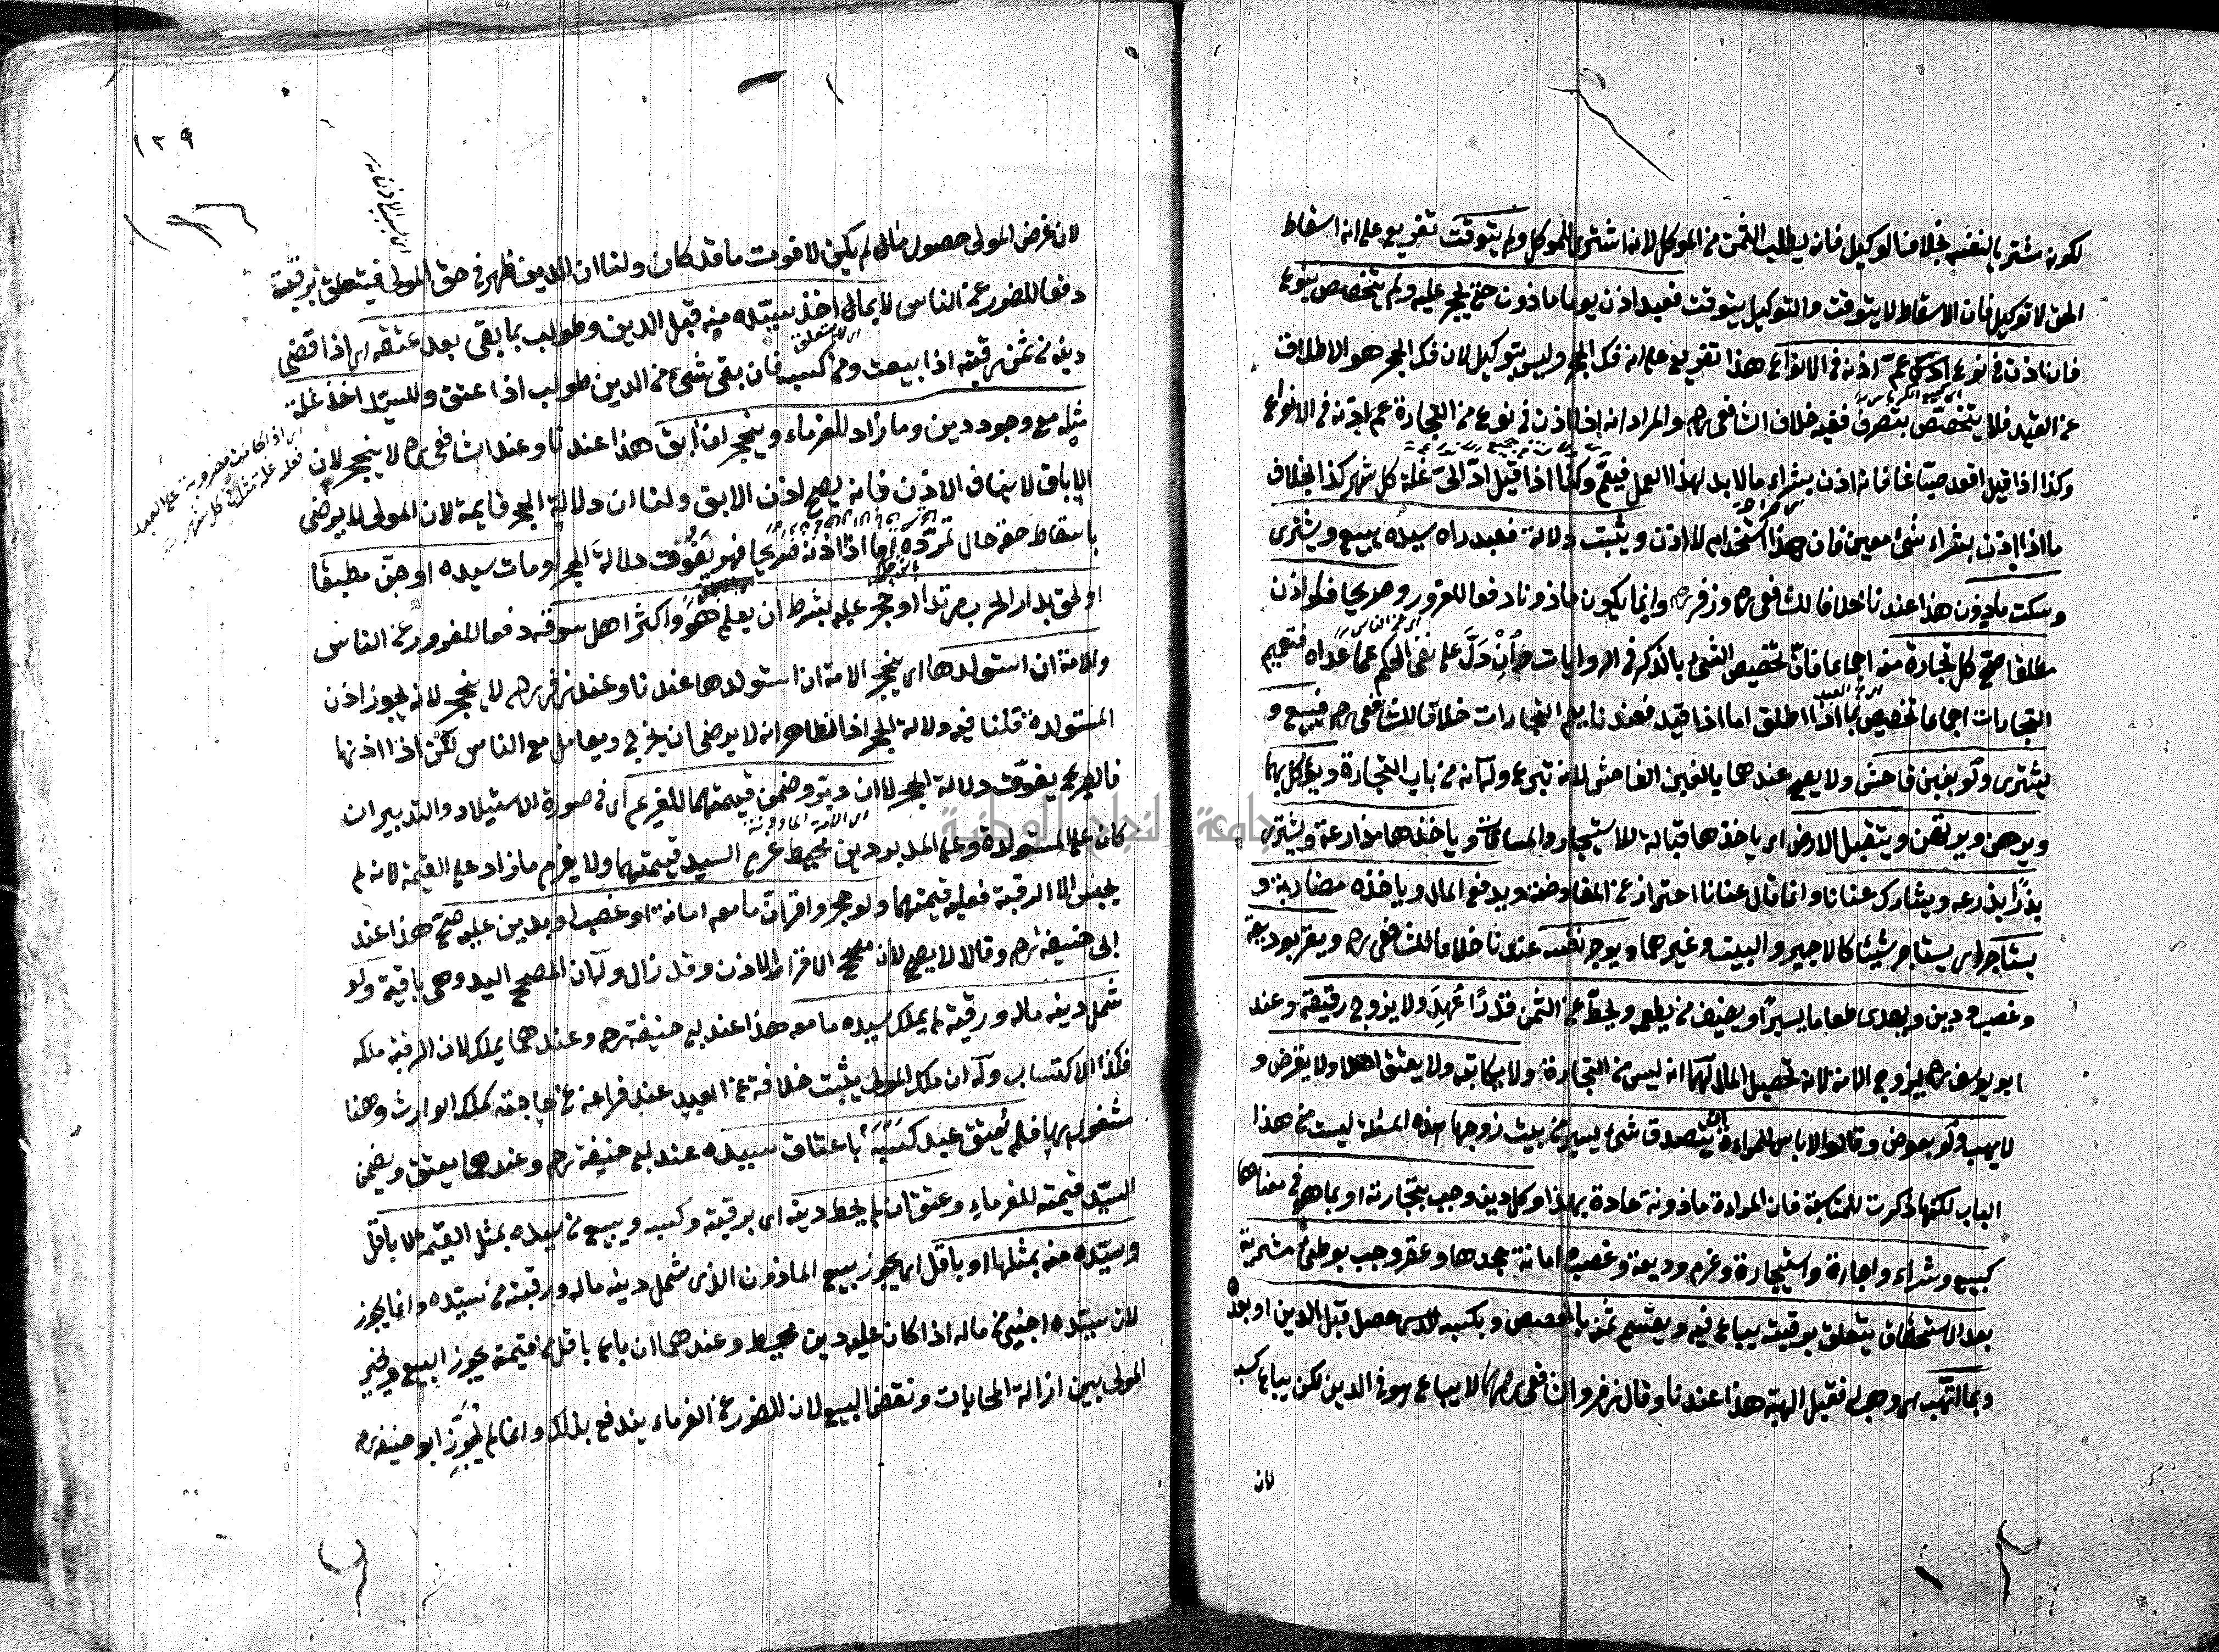 لكونه مشتريا لنفسه بخلاف الوكيل فانه يطلب الثمن من الموكل لانه اشترى للموكل ولم يتوقت تفريع على انه اسقاط
الحق لا توكيل فان الاسقاط لا يتوقت والتوكيل يتوقت فعبد اذن يوما ماذون حتى يحجر عليه ولم يتخصص بنوع
فان اذن في نوع عم اذنه في الانواع هذا تفريع على انه فك الحجر وليس بتوكيل لان فك الحجر هو الاطلاق
عن القيد فلا يتخصص بتصرف ففيه خلاف الشافعي رح والمراد انه اذا اذن في نوع من التجارة عم اذنه في الانواع
وكذا اذا قيل اقعد صباغا فانه اذن بشراء ما لا بد لهذا العمل فيعم وكذا اذا قيل اد الي غلة كل شهر كذا بخلاف
ما اذا اذن بشراء شئ معين فان هذا استخدام لا اذن ويثبت دلالة فعبد راه سيده يبيع ويشترى
وسكت ماذون هذا عندنا خلافا للشافعي رح وزفر رح وانما يكون ماذونا دفعا للغرور وصريحا فلو اذن
مطلقا صح كل تجارة منه اجماعا فان تخصيص الشئ بالذكر في الروايات دل على نفي الحكم عما عداه فتعميم
التجارات اجماعا تخصيص بما اذا اطلق اما اذا قيد فعندنا يعم التجارات خلافا للشافعي رح فيبيع و
يشترى ولو بغبن فاحش ولا يصح عندهما بالغبن الفاحش لانه تبرع وله انه من باب التجارة ويوكل بهما
ويرهن ويرتهن ويتقبل الارض اى ياخذها قبالة للاستيجار والمساقاة وياخذها مزارعة ويشترى
بذرا يذرعه ويشارك عنانا وانما قال عنانا احترازا عن المفاوضة ويدفع المال وياخذه مضاربة و
يستاجر اى يستاجر شيئا كالاجير والبيت وغيرهما ويوجر نفسه عندنا خلافا للشافعي رح ويقر بوديعة
وغصب ودين ويهدى طعاما يسيرا ويضيف من يطعمه ويحط عن الثمن قدرا عهد ولا يزوج رقيقه وعند
ابو يوسف رح يزوج الامة لانه تحصيل المال لهما انه ليس من التجارة ولا يكاتب ولا يعتق اصلا ولا يقرض و
لا يهب ولو بعوض وقالوا لا باس للمراءة تتصدق شئ يسير من بيت زوجها هذه المسئلة ليست من هذا
الباب لكنها ذكرت للمناسبة فان المراءة ماذونة عادة بهذا وكل دين وجب بتجارته او بما هو في معناها
كبيع وشراء واجارة واستيجارة وغرم وديعة وغصب وامانة جحدها وعقر وجب بوطئ مشرية
بعد الاستحقاق يتعلق برقبته يباع فيه ويقسم ثمنه بالحصص وبكسبه الذى حصل قبل الدين او بعده
وبما اتهب اى وهب له فقبل الهبة هذا عندنا وقال زفر والشافعي رحمهما لا يباع هو في الدين لكن يباع كسبه
لان
١٢٩
لان غرض المولى حصول مال لم يكن لا فوت ما قد كان ولنا ان الدين ظهر في حق المولى فيتعلق برقبته
دفعا للضرر عن الناس لا بمال اخذ سيده منه قبل الدين وطولب بما بقى بعد عتقه اى اذا قضى
دينه من ثمن رقبته اذا بيعت ومن كسبه فان بقى شئ من الدين طولب اذا عتق وللسيد اخذ غلة
مثله مع وجود دين وما زاد للغرماء وينحجر ان ابق هذا عندنا وعند الشافعي رح لا ينحجر لان
الاباق لا ينافي الاذن فانه يصح اذن الابق ولنا ان دلالة الحجر قايمة لان المولى لا يرضى
باسقاط حقه حال تمرده اما اذا اذنه صريحا فهو يفوق دلالة الحجر او مات سيده او جن مطبقا
او لحق بدار الحرب مرتدا او حجر عليه بشرط ان يعلم هو واكثر اهل سوقه دفعا للغرور عن الناس
والامة ان استولدها اى ينحجر الامة ان استولدها عندنا وعند زفر رح لا ينحجر لانه يجوز اذن
المستولدة قلنا فيه دلالة الحجر اذا الظاهر انه لا يرضى ان يخرج ويعامل مع الناس لكن اذا اذنها
فالصريح يفوق دلالة الحجر لا ان دبر وضمن قيمتهما للغريم اى في صورة الاستيلاد والتدبير ان
كان على المستولدة وعلى المدبر دين محيط غرم السيد قيمتهما ولا يغرم ما زاد على القيمة لانه لم
يحبس الا الرقبة فعليه قيمتهما ولو حجر واقر ان ما معه امانة او غصب او بدين عليه صح هذا عند
ابى حنيفة رح وقالا لا يصح لان مصحح الاقرار الاذن وقد زال وله ان المصحح اليد وهى باقية ولو
شمل دينه ماله ورقبته لم يملك سيده ما معه هذا عند ابى حنيفة رح وعندهما يملك لان الرقبة ملكه
فكذا الاكتساب وله ان ملك المولى يثبت خلافة عن العبد عند فراغه عن حاجته كملك الوارث وهنا
مشغول بها فلم يعتق عبد كسبه باعتاق سيده عند ابى حنيفة رح وعندهما يعتق ويضمن
السيد قيمته للغرماء وعتق ان لم يحط دينه اى برقبته وكسبه ويبيع من سيده بمثل القيمة لا باقل
وسيده منه بمثلها او باقل اى يجوز بيع الماذون الذى شمل دينه ماله ورقبته من سيده وانما يجوز
لان سيده اجنبى من ماله اذا كان عليه دين محيط وعندهما ان باع باقل من قيمته يجوز البيع ويخير
المولى بين ازالة المحابات ونقض البيع لان الضرر عن الغرماء يندفع بذلك وانما لم يجوز ابو حنيفة رح
جامعة النجاح الوطنية